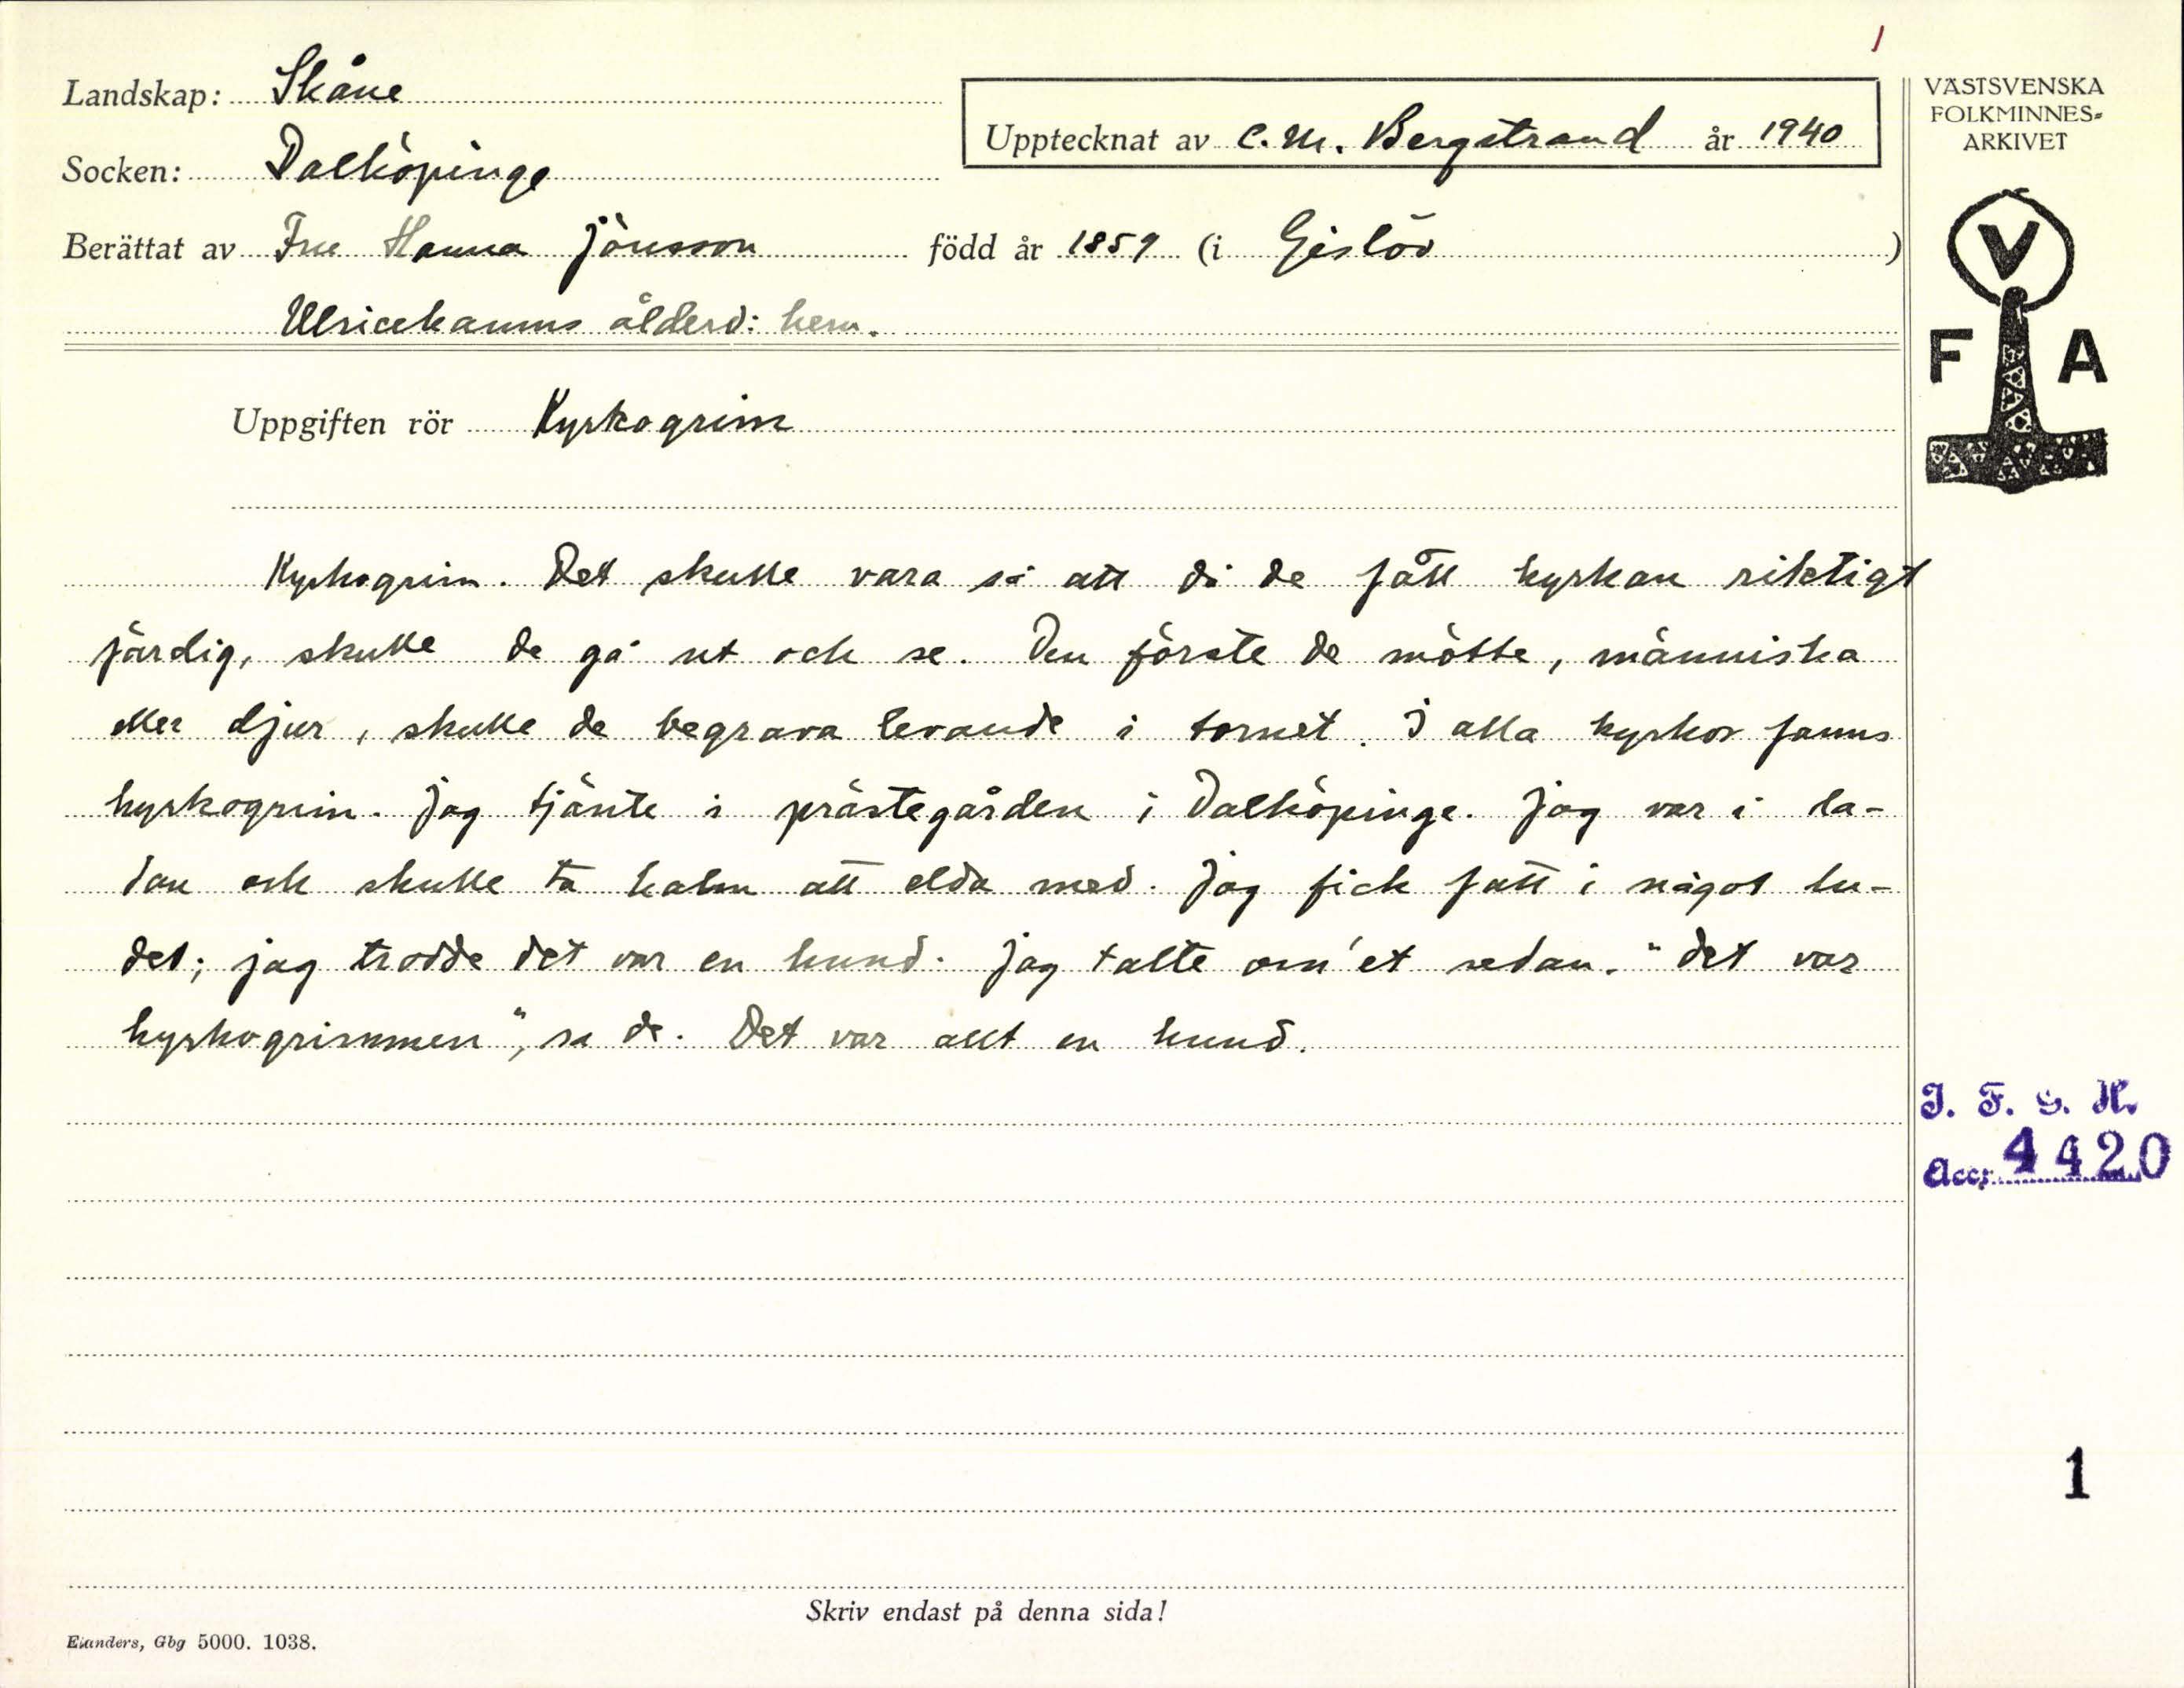 1
Landskap: Skåne
Upptecknat av C. M. Bergstrand år 1940
Socken: Dalköpinge
Berättat av Fru Hanna Jönsson född år 1859 (i Gislöv)
Ulricehamns ålderd: hem.
Uppgiften rör Kyrkogrim
Kyrkogrim. Det skulle vara så att då de fått kyrkan riktigt
färdig, skulle de gå ut och se. Den förste de mötte, människa
eller djur, skulle de begrava levande i tornet. I alla kyrkor fanns
kyrkogrim. Jag tjänte i prästegården i Dalköpinge. Jag var i la-
dan och skulle ta halm att elda med. Jag fick fatt i något lu-
det; jag trodde det var en hund. Jag talte om'et sedan. "Det var
kyrkogrimmen", sa de. Det var allt en hund.
Skriv endast på denna sida!
Elanders, Gbg 5000. 1038.
VÄSTSVENSKA
FOLKMINNES-
ARKIVET
V
F A
I. F. G. H.
Acc. 4420
1